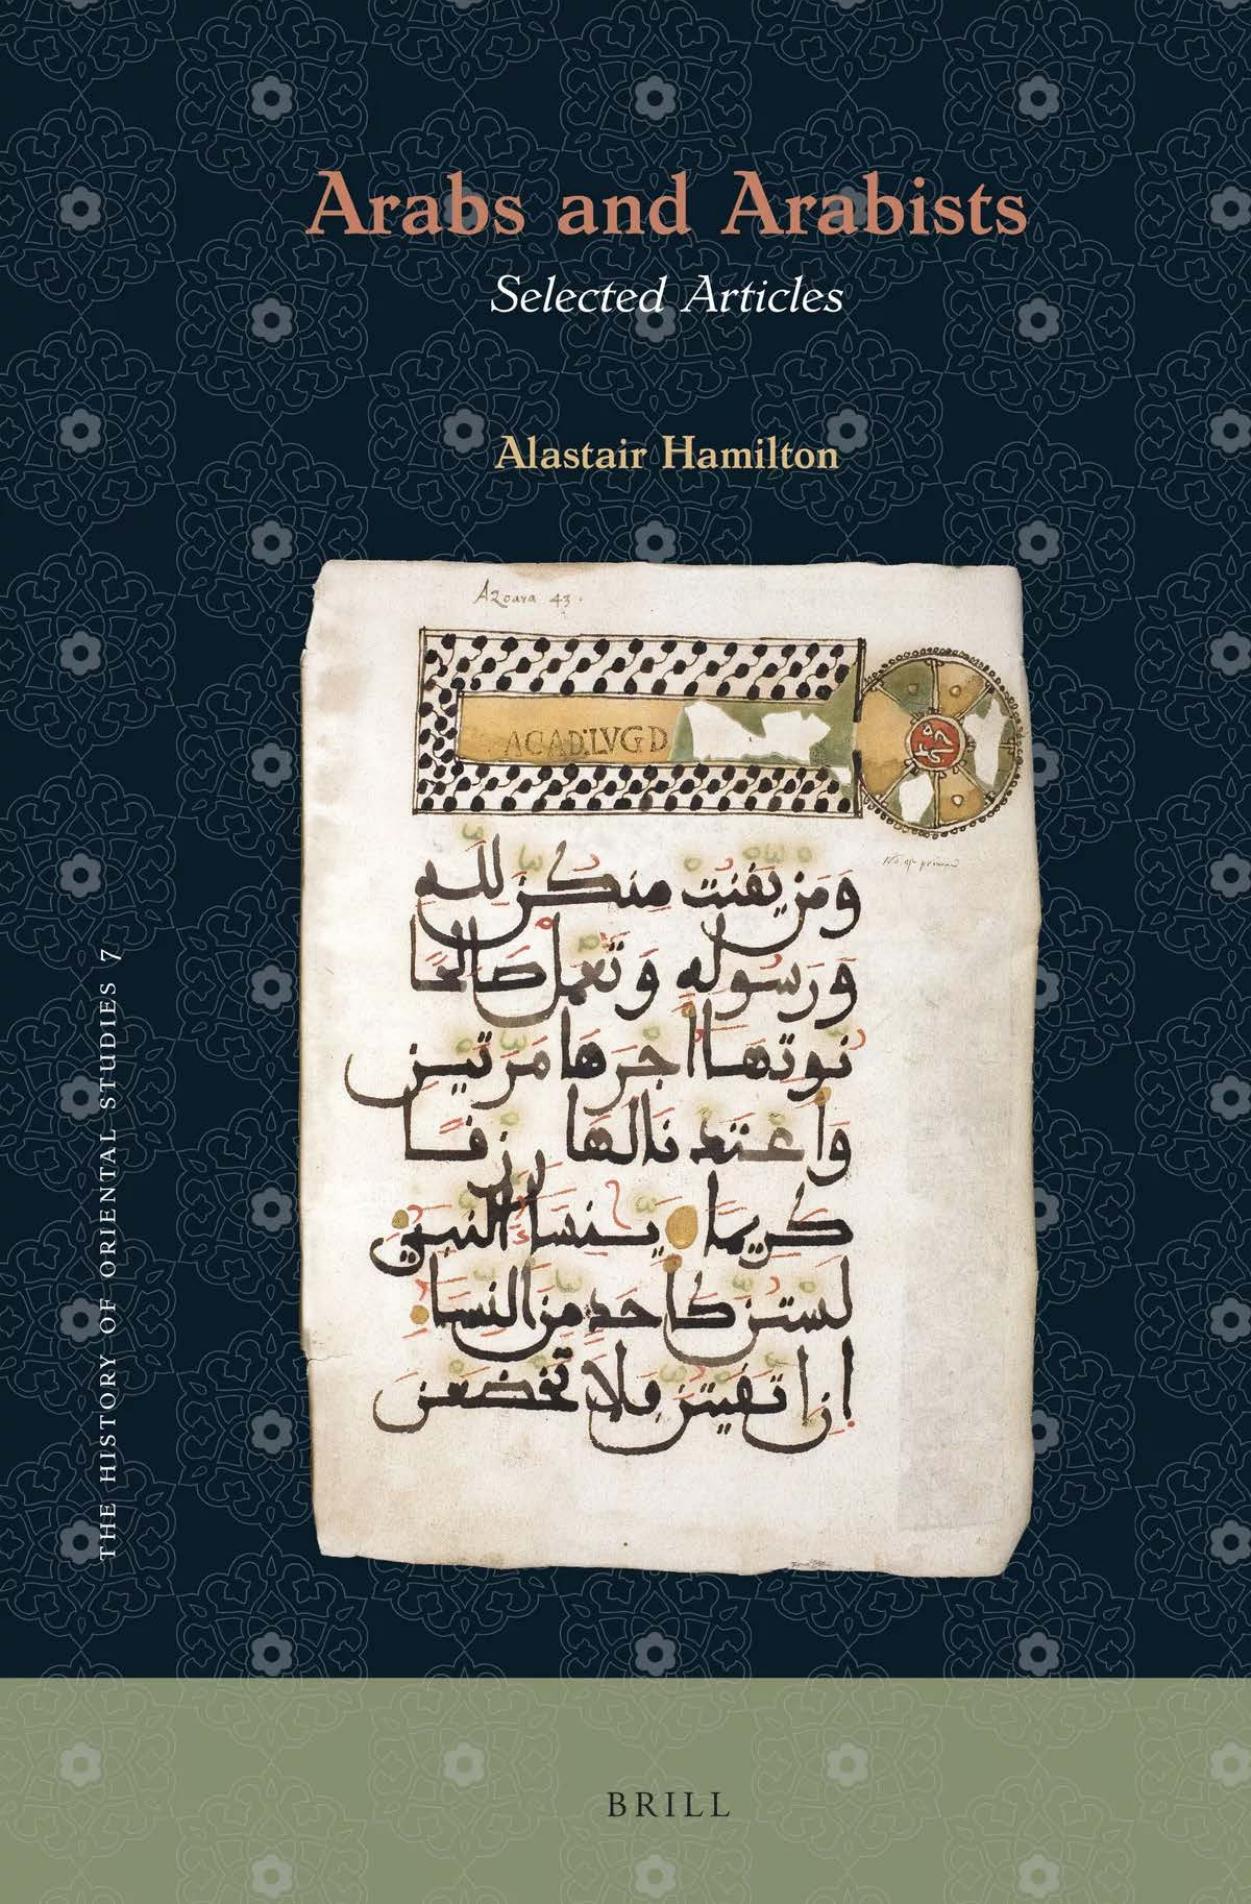 Arabs and Arabists
Selected Articles
Alastair Hamilton
Azoara 43.
ACAD.LVGD
ومن يقنت منكن لله
ورسوله وتعمل صالحا
نوتها اجرها مرتين
واعتدنا لها رزقا
كريما ينساء النبي
لستن كاحد من النساء
ان اتقيتن فلا تخضعن
THE HISTORY OF ORIENTAL STUDIES 7
BRILL